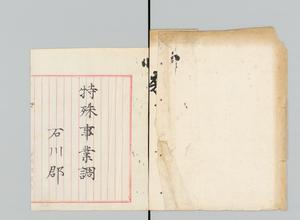 特殊事業調
石川郡